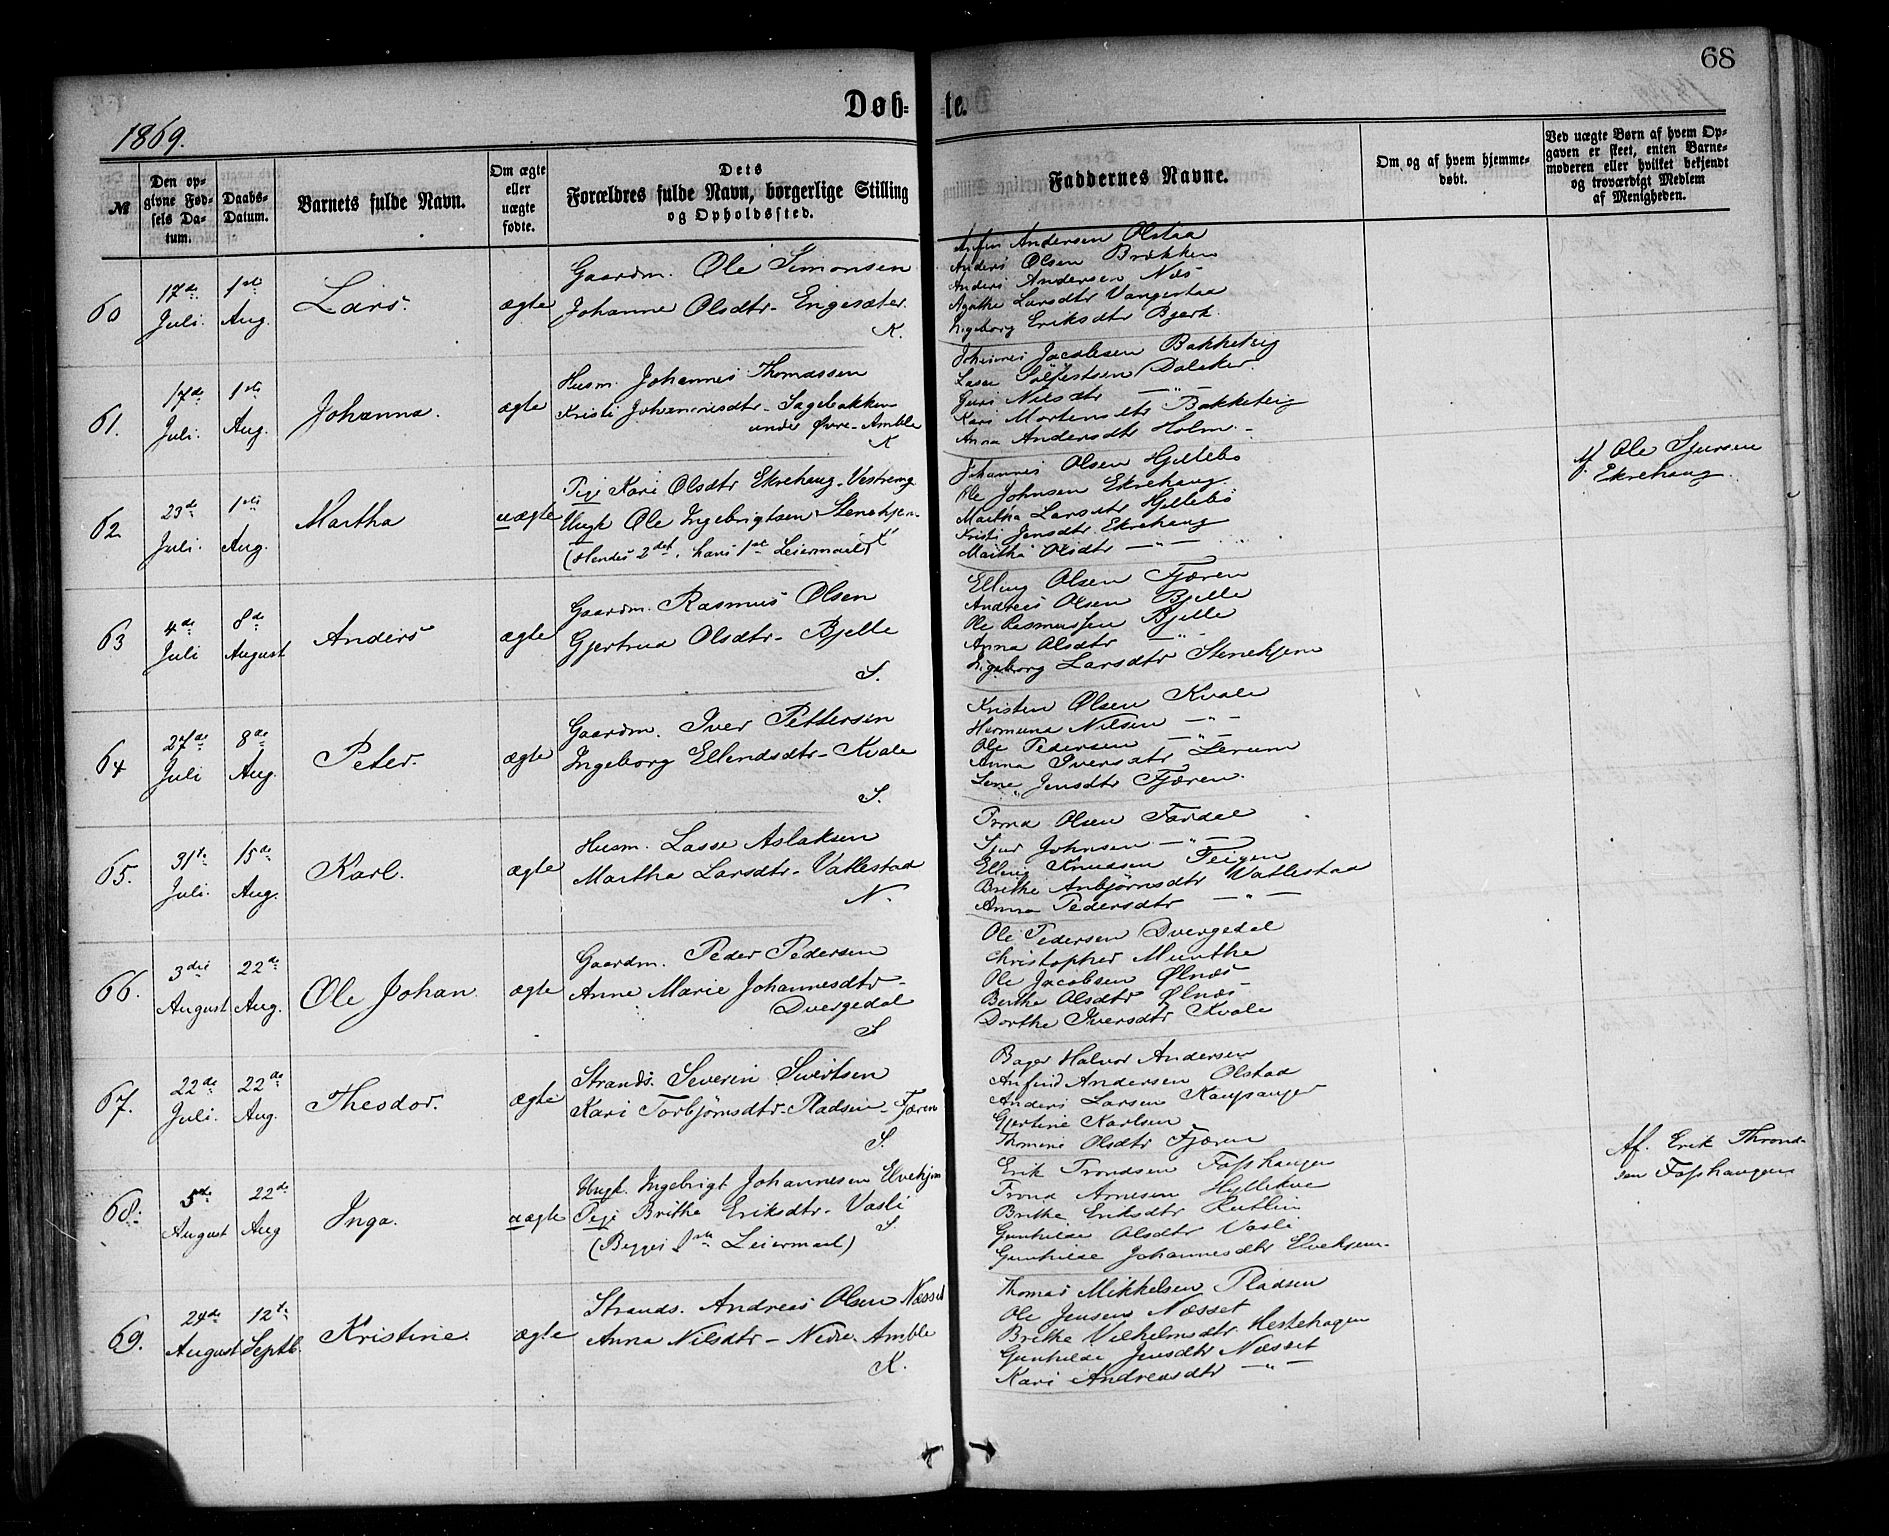 68
Døb- te.
1869.
№
Den op-
givne Fød-
sels Da-
tum.
Daabs-
Datum.
Barnets fulde Navn.
Om ægte
eller
uægte
fødte.
Dets
Forældres fulde Navn, borgerlige Stilling
og Opholdssted.
Faddernes Navne.
Om og af hvem hjemme-
døbt.
Ved uægte Børn af hvem Op-
gaven er skeet, enten Barne-
moderen eller hvilket bekjendt
og troværdigt Medlem
af Menigheden.
60
17de Juli.
1ste Aug.
Lars.
ægte
Gaardm. Ole Simonsen
Johanne Olsdtr- Engesæter.
K.
Anfin Andersen Olstaa
Anders Olsen Brækken
Anders Andersen Næs
Agathe Larsdtr Vangestaa
Ingeborg Eriksdtr Bjerk.
61.
17de Juli.
1ste Aug.
Johanna.
ægte
Husm. Johannes Thomassen
Kristi Johannesdtr- Sagebakken
under Øvre-Amble
K
Johannes Jacobsen Bakketeig
Lasse Sølfestsen Daleker.
Guri Nilsdtr — " —
Kari Mortensdtr Bakketeig
Anna Andersdtr Holm. -
62
23de Juli.
1ste Aug.
Martha
uægte
Pige Kari Olsdtr Ekrehaug-Vestreng
Ungk Ole Ingebrigtsen Stenehjem.
(Hendes 2det, hans 1ste Leiermaal)
K
Johannes Olsen Hjellebø
Ole Johnsen Ekrehaug
Martha Larsdtr Hjellebø
Kristi Jensdtr. Ekrehaug
Martha Olsdtr — " —
Af Ole Sjursen
Ekrehaug.
63
4de Juli
8de August
Anders
ægte
Gaardm. Rasmus Olsen
Gjertrud Olsdtr- Bjelle
S.
Elling Olsen Fjæren
Andreas Olsen Bjelle
Ole Rasmussen Bjelle
Anna Olsdtr — " —
Ingeborg Larsdtr Stenehjem
64
27de Juli
8de Aug.
Peter.
ægte
Gaardm. Iver Pettersen
Ingeborg Ellendsdtr- Kvale
S.
Kristen Olsen Kvale
Hermund Nilsen — " —
Ole Pedersen — " —
Anna Iversdtr Lerum
Lene Jensdtr Fjæren.
65.
31te Juli.
15de Aug.
Karl.
ægte
Husm. Lasse Aslaksen
Martha Larsdtr- Vallestad
N.
Trond Olsen Fardal
Sjur Johnsen — " —
Elling Knudsen Feigen
Brithe Anbjørnsdtr Vatlestaa
Anna Pedersdtr — " —
66.
3die August
22de Aug.
Ole Johan.
ægte
Gaardm. Peder Pedersen
Anne Marie Johannesdtr-
Dvergedal
S
Ole Pedersen Dvergedal
Christopher Munthe
Ole Jacobsen Ølnæs
Berthe Olsdtr Ølnæs
Dorthe Iversdtr Kvale
67.
22de Juli.
22de Aug.
Theodor.
ægte
Strands. Severin Sivertsen
Kari Torbjørnsdtr- Pladsen- Fjæren
S.
Bager Halvor Andersen
Anfind Andersen Olstad
Anders Larsen Kaupanger
Gjertine Karlsen
Thomine Olsdtr Fjæren
68.
5de August
22de Aug
Inga.
uægte
Ungk. Ingebrigt Johannesen Elvehjem
Pige Brithe Eriksdtr- Vasli
(Begges 1ste Leiermaal)
S.
Erik Trondsen Fosshaugen
Trond Arnesen Hyllekve
Brithe Eriksdtr Hutlin
Gunhilde Olsdtr Vasli
Gunhilde Johannesdtr Elvehjem.
Af. Erik Thrond-
sen Fosshaugen
69.
24de August
12te Septb.
Kristine.
ægte
Strands. Andreas Olsen Næsset
Anna Nilsdtr- Nedre Amble
K.
Thomas Mikkelsen Pladsen
Ole Jensen Næsset
Brithe Vilhelmsdtr. Hestehagen
Gunhilde Jensdtr Næsset
Kari Andreasdtr — " —